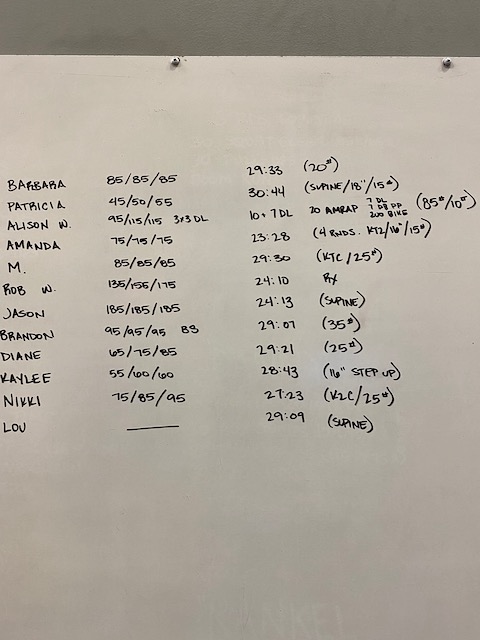 BARBARA 85/85/85 29:33 (20#)
PATRICIA 45/50/55 30:44 (SUPINE/18"/15#)
ALISON W. 95/115/115 3x3 DL 10+7 DL 20 AMRAP 7 DL 7 DB PP 200 BIKE (85#/10#)
AMANDA 75/75/75 23:28 (4 RNDS. KTE/16"/15#)
M. 85/85/85 29:30 (KTC/25#)
ROB W. 135/155/175 24:10 RX
JASON 185/185/185 24:13 (SUPINE)
BRANDON 95/95/95 BS 29:07 (35#)
DIANE 65/75/85 29:21 (25#)
KAYLEE 55/60/60 28:43 (16" STEP UP)
NIKKI 75/85/95 27:23 (K2C/25#)
LOU 29:09 (SUPINE)